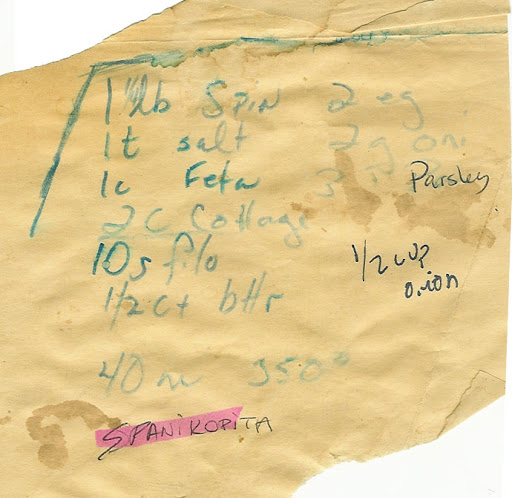 1 lb Spin 2 eg
1t salt 2 g oni
1c Feta 3 Parsley
2C Cottage
10s filo
1/2 c+ bttr
1/2 cup onion
40 m 350°
SPANIKOPITA